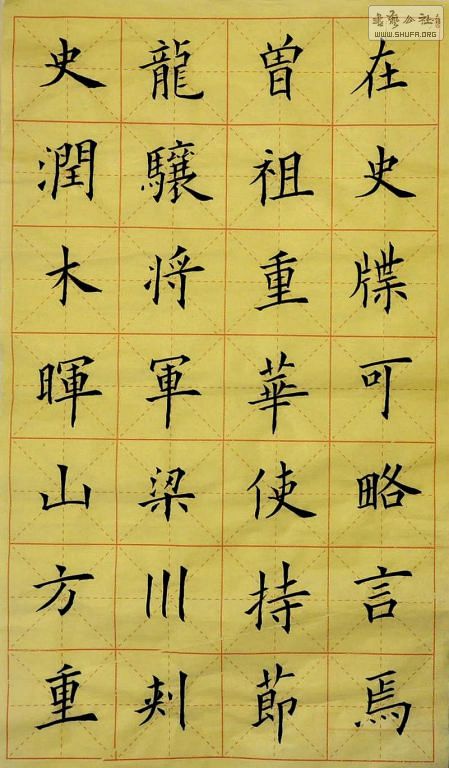 在史牒可略言焉
曾祖重華使持節
龍驤将軍梁川刾
史潤木暉山方重
书艺公社
WWW.SHUFA.ORG